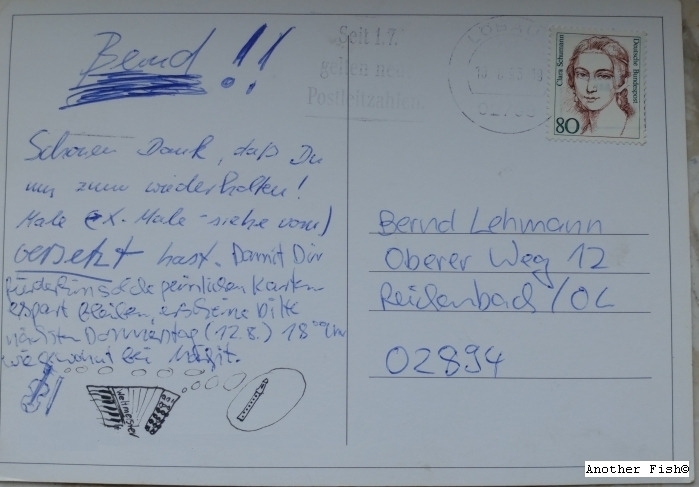 Bernd!!
Schönen Dank, daß Du
nun zum wiederholten!
Male (x. Male - siehe vorn)
versetzt hast. Damit Dir
fürderhin solche peinlichen Karten
erspart bleiben, erscheine bitte
nächsten Donnerstag (12.8.) 18⁰⁰ Uhr
wie gewohnt bei
Weltmeister
"Seit 1.7.
gelten neue
Postleitzahlen.
Clara Schumann
Deutsche Bundespost
80
Bernd Lehmann
Oberer Weg 12
Reichenbach/OL
02894
Another Fish©